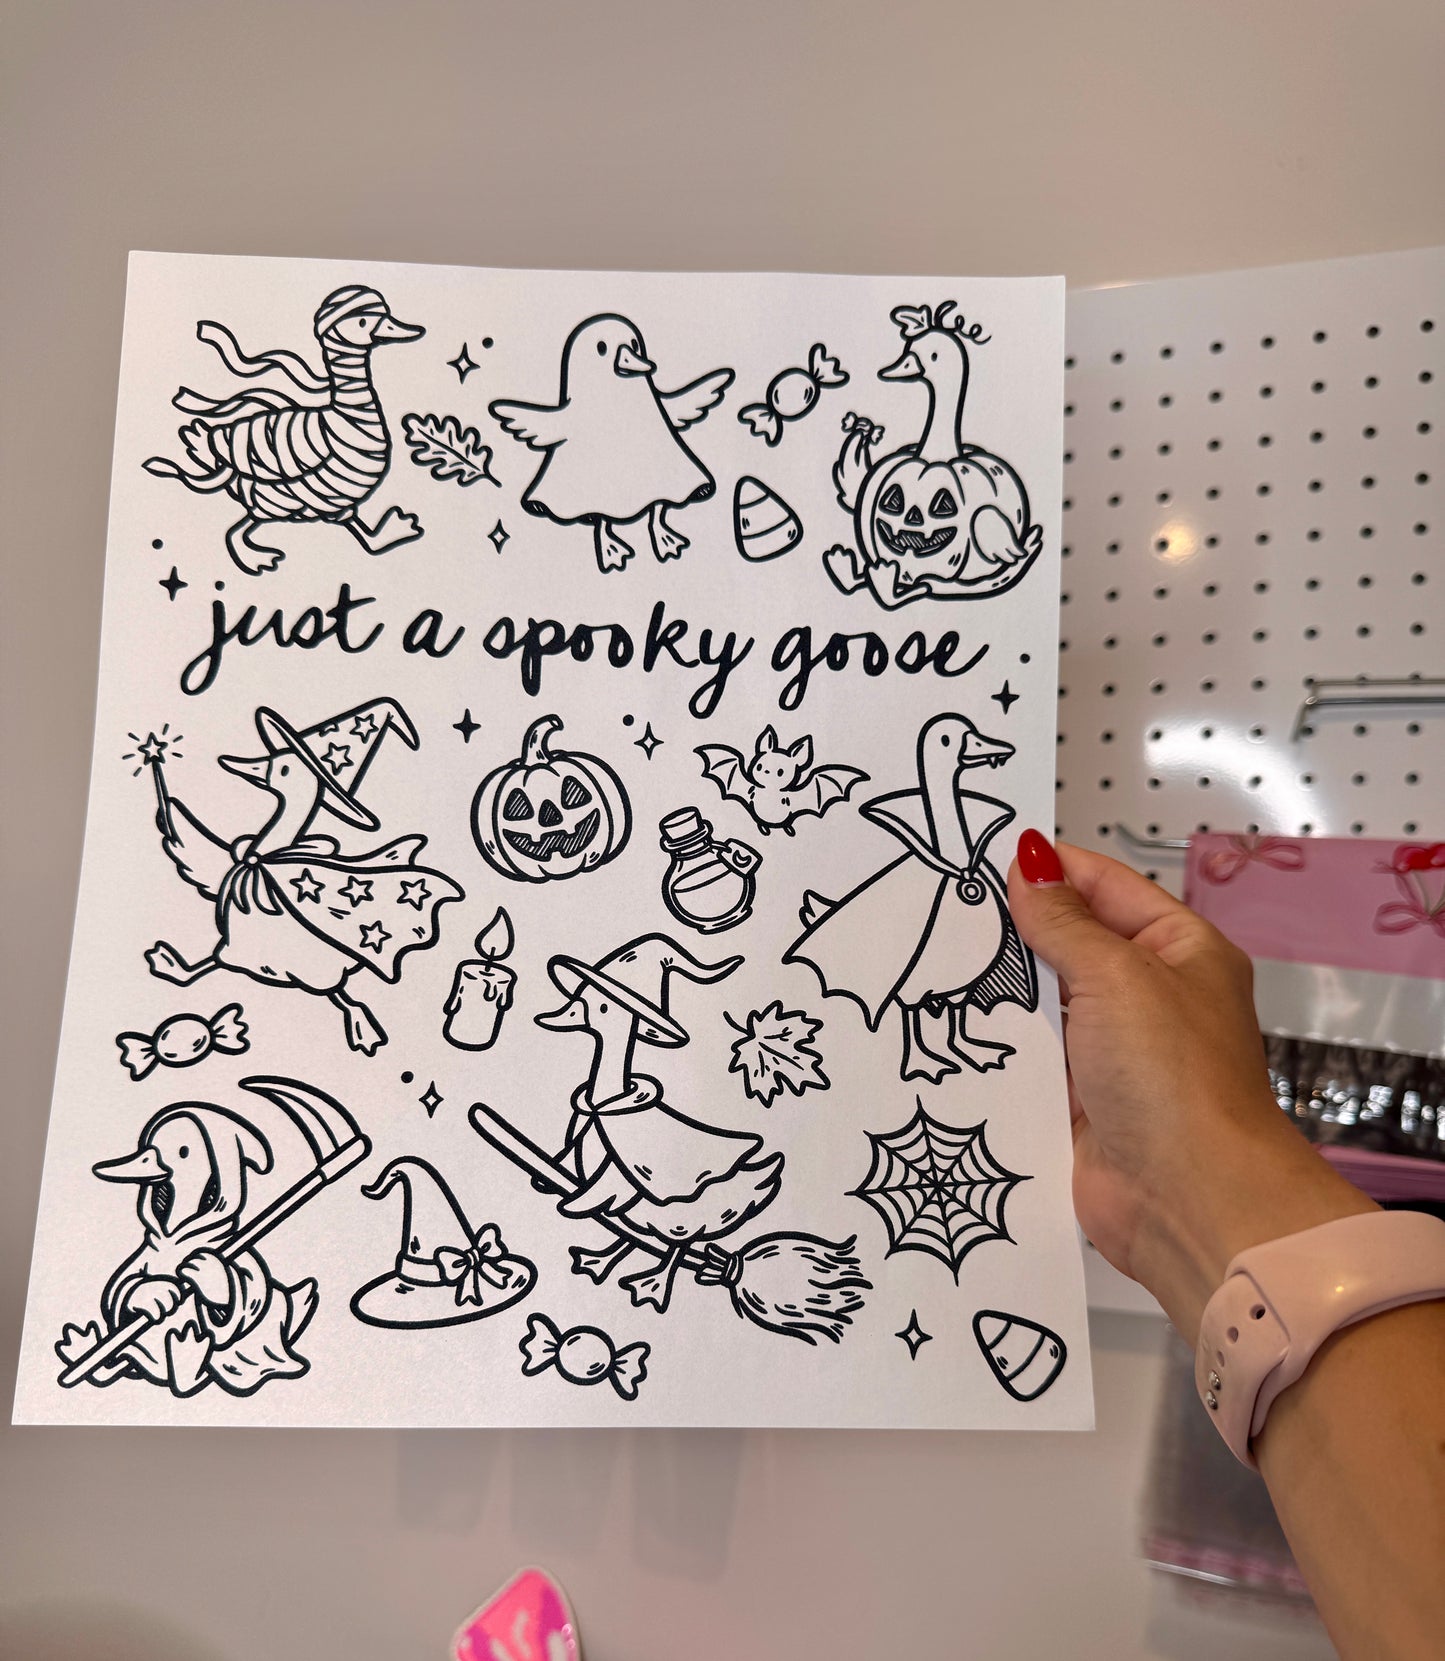 just a spooky goose